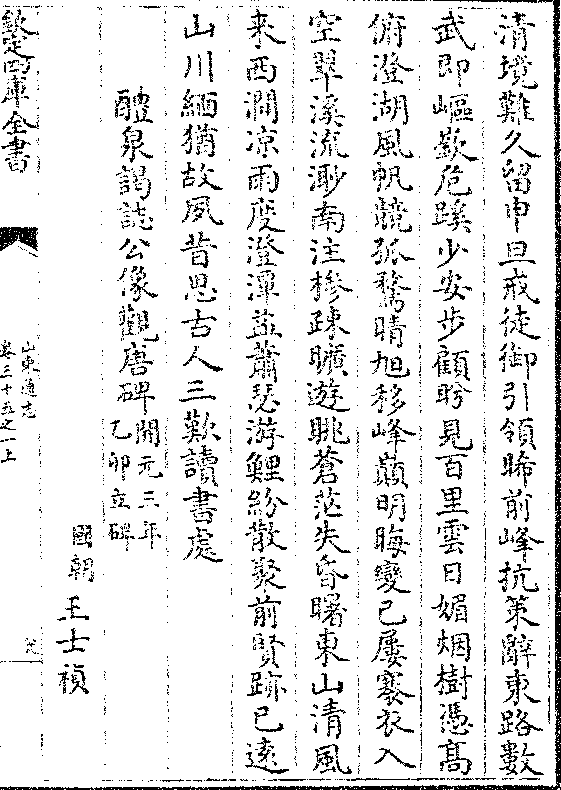 清境難久留申旦戒徒御引領睎前峰抗策辭東路數
武即嶇嶔危蹊少安步顧盻見百里雲日媚烟樹憑髙
俯澄湖風帆競孤騖晴旭移峰巔明晦變已屢褰衣入
空翠溪流渺南注椮疎曠遊眺蒼茫失昏曙東山清風
来西澗凉雨度澄潭益蕭瑟游鯉紛散聚前賢跡已逺
山川緬猶故夙昔思古人三歎讀書處
醴泉謁誌公像觀唐碑開元三年乙卯立碑
國朝王士禎
欽定四庫全書
山東通志
卷三十五之一上